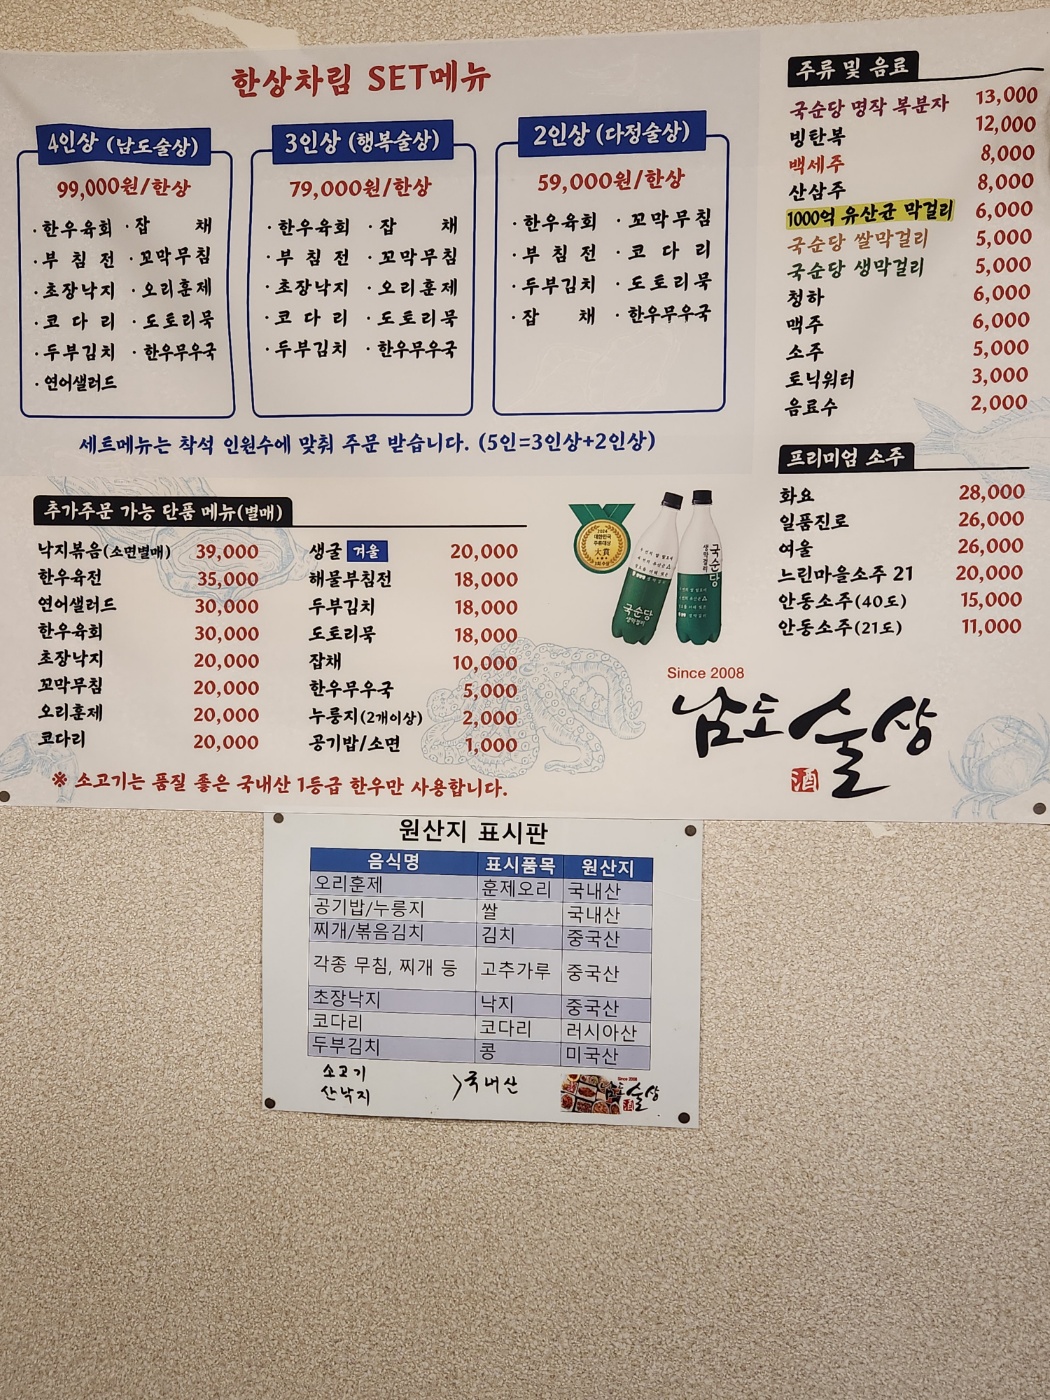 한상차림 SET메뉴
4인상 (남도술상)
99,000원/한상
· 한우육회 · 잡 채
· 부 침 전 · 꼬막무침
· 초장낙지 · 오리훈제
· 코 다 리 · 도토리묵
· 두부김치 · 한우무우국
· 연어샐러드
3인상 (행복술상)
79,000원/한상
· 한우육회 · 잡 채
· 부 침 전 · 꼬막무침
· 초장낙지 · 오리훈제
· 코 다 리 · 도토리묵
· 두부김치 · 한우무우국
2인상 (다정술상)
59,000원/한상
· 한우육회 · 꼬막무침
· 부 침 전 · 코 다 리
· 두부김치 · 도토리묵
· 잡 채 · 한우무우국
세트메뉴는 착석 인원수에 맞춰 주문 받습니다. (5인=3인상+2인상)
주류 및 음료
국순당 명작 복분자 13,000
빙탄복 12,000
백세주 8,000
산삼주 8,000
1000억 유산균 막걸리 6,000
국순당 쌀막걸리 5,000
국순당 생막걸리 5,000
청하 6,000
맥주 6,000
소주 5,000
토닉워터 3,000
음료수 2,000
프리미엄 소주
화요 28,000
일품진로 26,000
여울 26,000
느린마을소주 21 20,000
안동소주(40도) 15,000
안동소주(21도) 11,000
추가주문 가능 단품 메뉴(별매)
낙지볶음(소면별매) 39,000
한우육전 35,000
연어샐러드 30,000
한우육회 30,000
초장낙지 20,000
꼬막무침 20,000
오리훈제 20,000
코다리 20,000
생굴 겨울 20,000
해물부침전 18,000
두부김치 18,000
도토리묵 18,000
잡채 10,000
한우무우국 5,000
누룽지(2개이상) 2,000
공기밥/소면 1,000
※ 소고기는 품질 좋은 국내산 1등급 한우만 사용합니다.
2024
대한민국
주류대상
大賞
국순당
생막걸리
국순당
생막걸리
Since 2008
남도술상
酒
원산지 표시판
음식명 표시품목 원산지
오리훈제 훈제오리 국내산
공기밥/누룽지 쌀 국내산
찌개/볶음김치 김치 중국산
각종 무침, 찌개 등 고추가루 중국산
초장낙지 낙지 중국산
코다리 코다리 러시아산
두부김치 콩 미국산
소고기
산낙지 > 국내산
Since 2008
남도술상